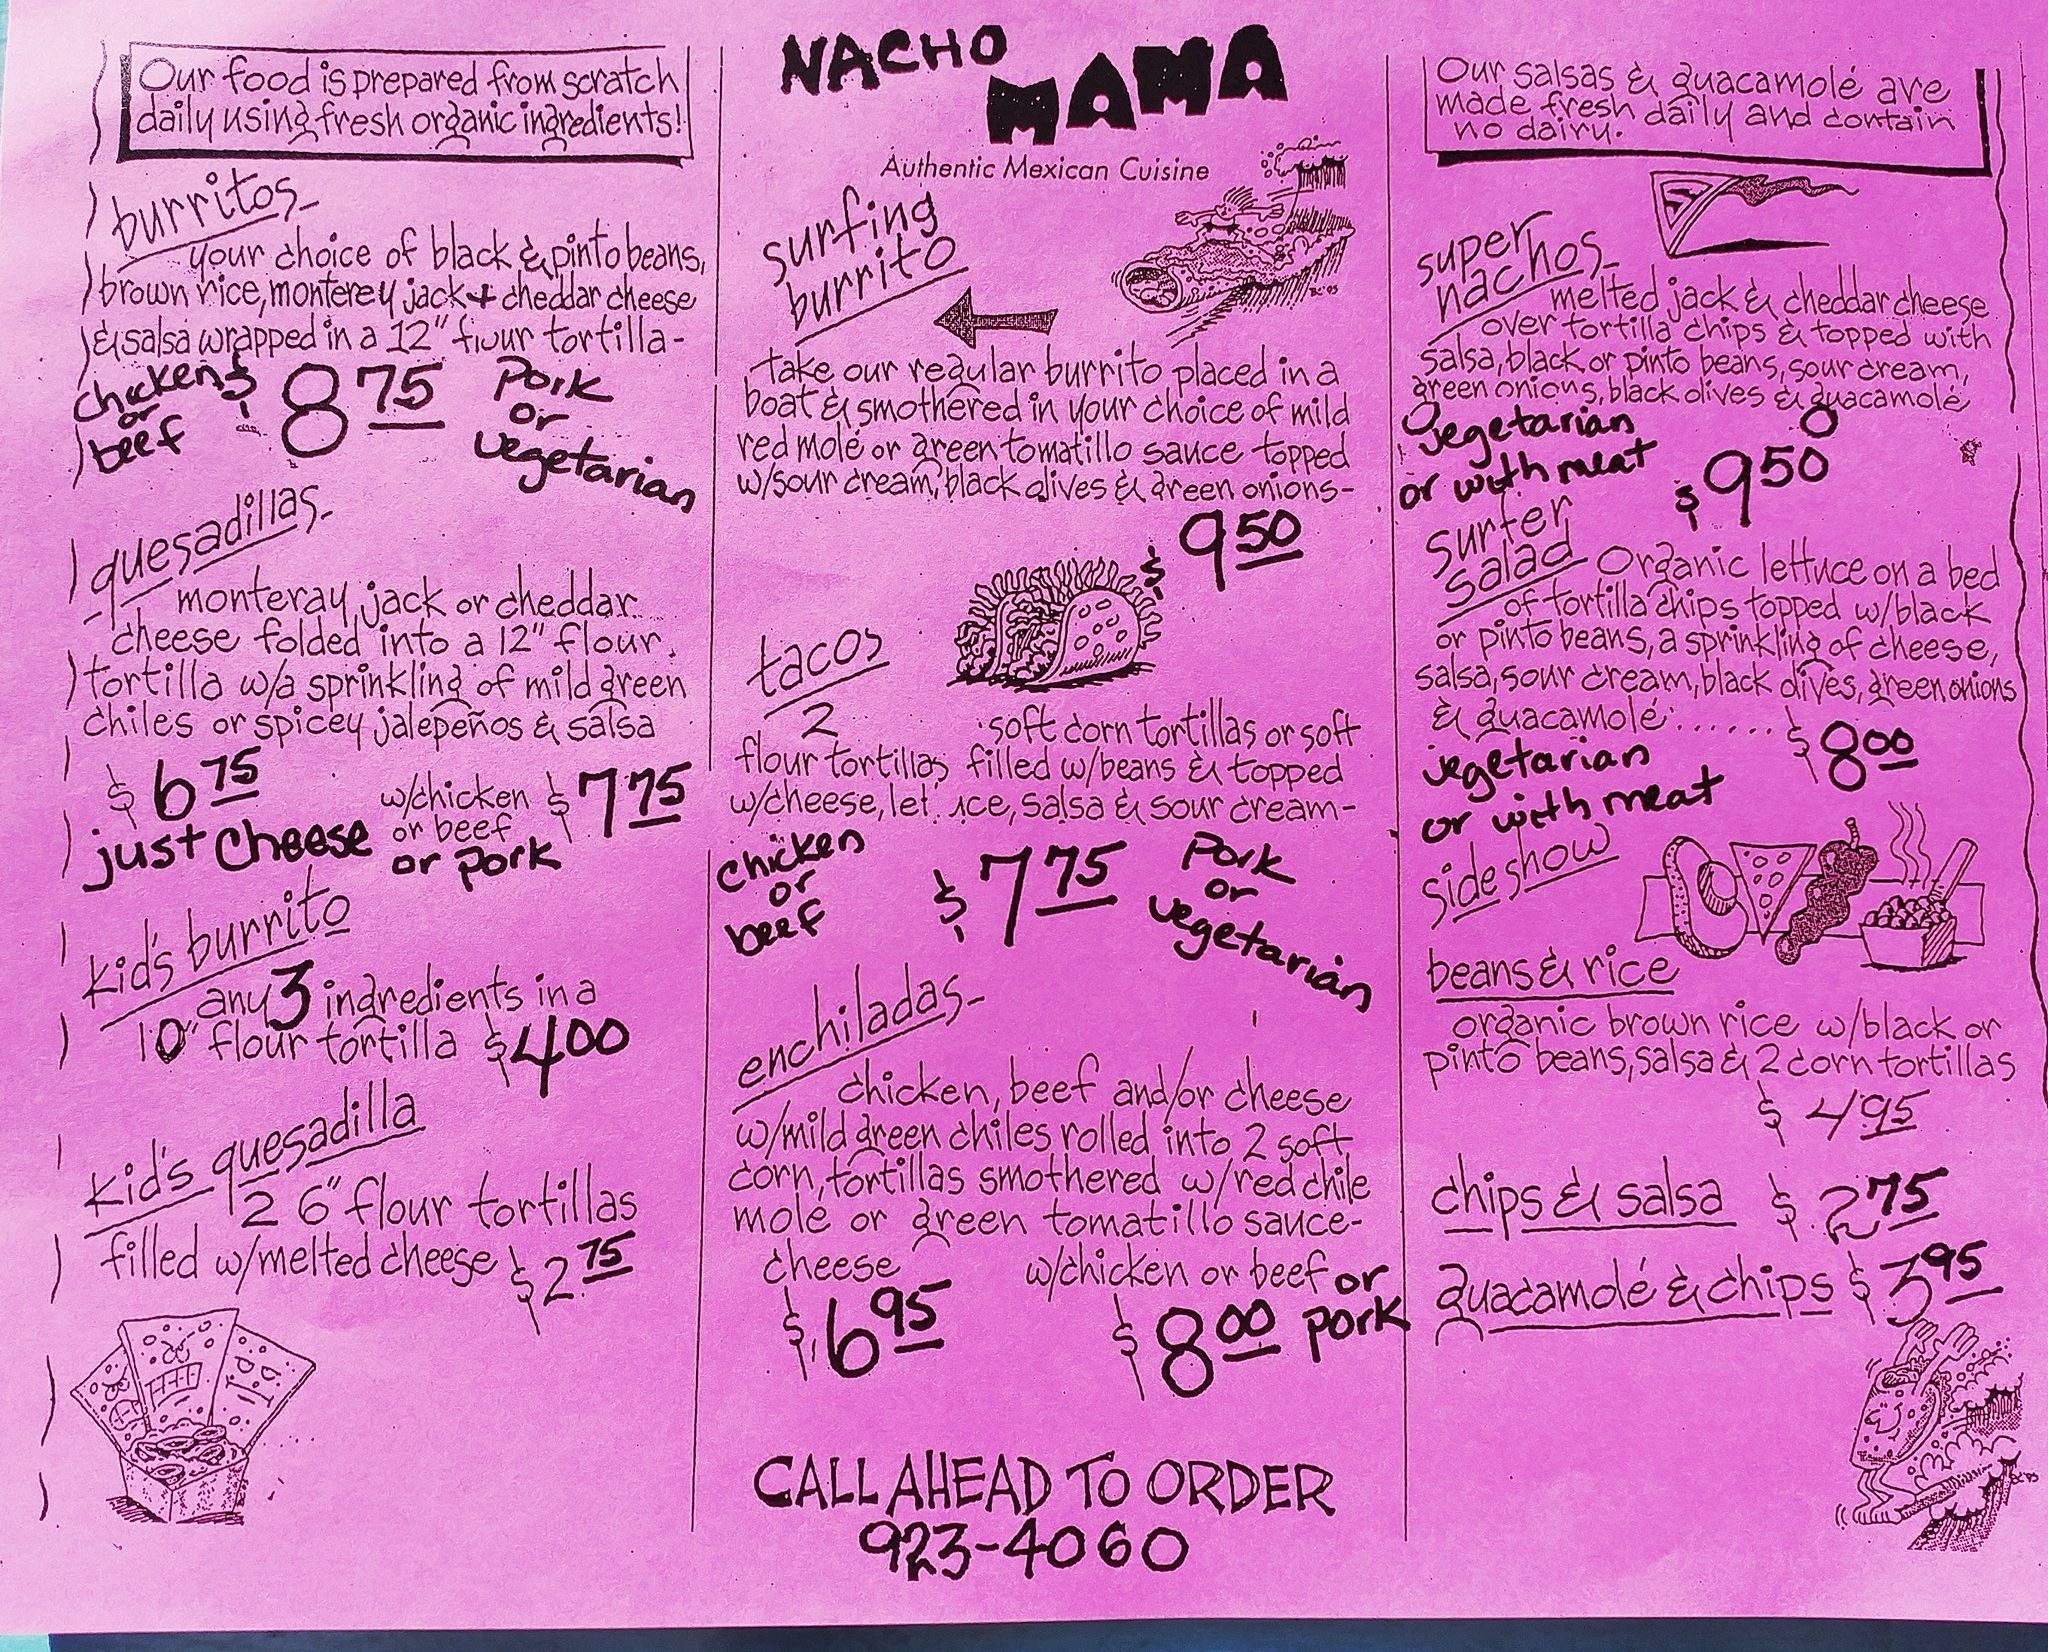 Our food is prepared from scratch
daily using fresh organic ingredients!
burritos
your choice of black & pinto beans,
brown rice, monterey jack + cheddar cheese
& salsa wrapped in a 12" flour tortilla-
chicken or beef $8.75 Pork or vegetarian
quesadillas
monteray jack or cheddar
cheese folded into a 12" flour
tortilla w/a sprinkling of mild green
chiles or spicey jalepeños & salsa
$6.75 w/chicken $7.75
or beef
just cheese or pork
kid's burrito
any 3 ingredients in a
10" flour tortilla $4.00
kid's quesadilla
2 6" flour tortillas
filled w/melted cheese $2.75
NACHO
MAMA
Authentic Mexican Cuisine
surfing
burrito
BC'95
take our regular burrito placed in a
boat & smothered in your choice of mild
red molé or green tomatillo sauce topped
w/sour cream, black olives & green onions-
$9.50
tacos
2 soft corn tortillas or soft
flour tortillas filled w/beans & topped
w/cheese, let ice, salsa & sour cream-
chicken or beef $7.75 Pork or vegetarian
enchiladas
chicken, beef and/or cheese
w/mild green chiles rolled into 2 soft
corn tortillas smothered w/red chile
mole or green tomatillo sauce-
cheese w/chicken or beef or
$6.95 $8.00 pork
CALL AHEAD TO ORDER
923-4060
Our salsas & guacamolé are
made fresh daily and contain
no dairy.
super
nachos
melted jack & cheddar cheese
over tortilla chips & topped with
salsa, black or pinto beans, sour cream,
green onions, black olives & guacamolé
vegetarian
or with meat $9.50
surfer
salad Organic lettuce on a bed
of tortilla chips topped w/black
or pinto beans, a sprinkling of cheese,
salsa, sour cream, black olives, green onions
& guacamolé....... $8.00
vegetarian
or with meat
sideshow
beans & rice
organic brown rice w/black or
pinto beans, salsa & 2 corn tortillas
$4.95
chips & salsa $2.75
guacamolé & chips $3.95